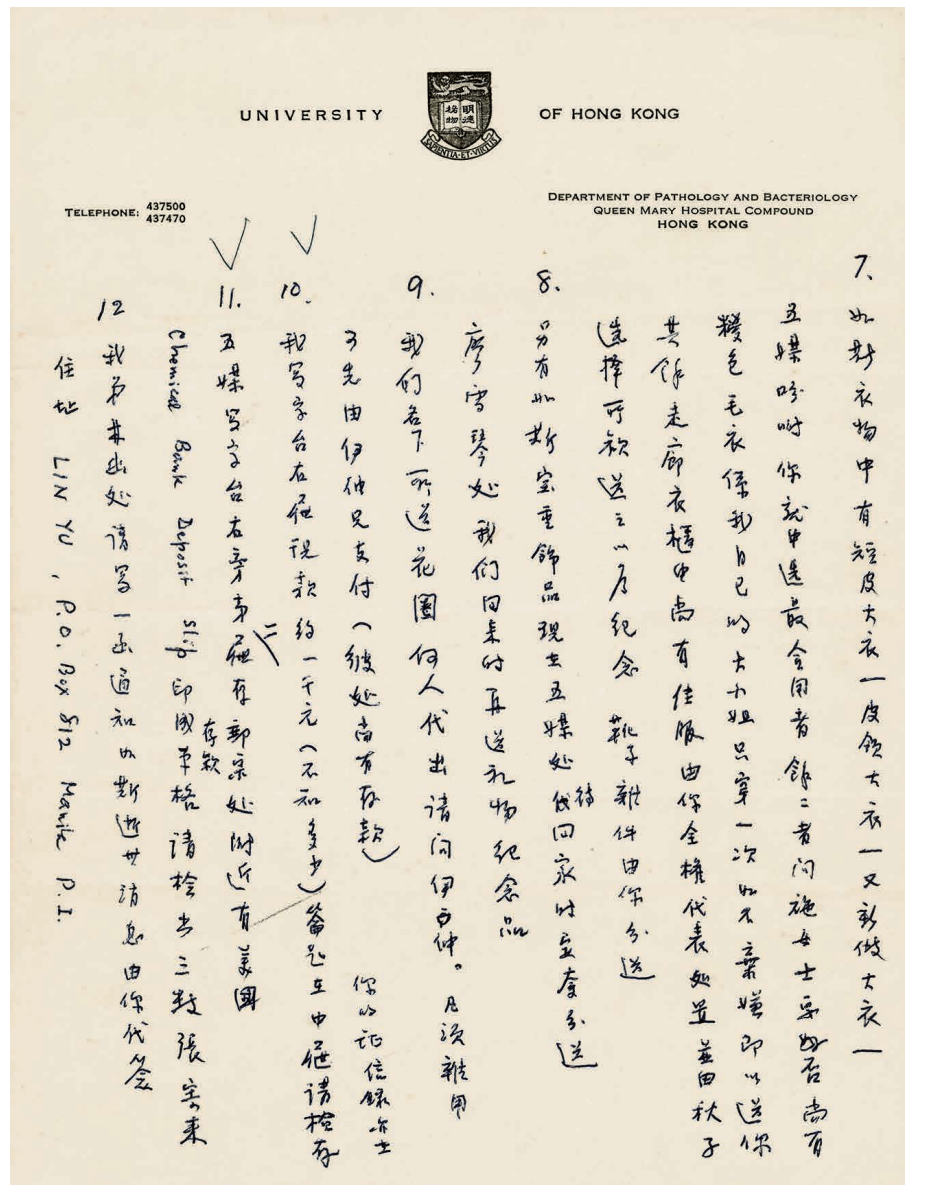 UNIVERSITY OF HONG KONG
明德
格物
SAPIENTIA·ET·VIRTUS
TELEPHONE: 437500
437470
DEPARTMENT OF PATHOLOGY AND BACTERIOLOGY
QUEEN MARY HOSPITAL COMPOUND
HONG KONG
7. 如斯衣物中有短皮大衣一皮领大衣一又新做大衣一
五媒吩咐你就中選最合用者餘二者问施女士要否尚有
毛衣係我自己的大小姐只穿一次如不棄嫌即以送你
其餘走廊衣櫃中尚有佳服由你全權代表处置並由秋子
选擇可欵送之以为纪念 靴子雜件由你分送
8. 另有如斯宝重飾品现在五媒处待代回家时宝奪分送
廖雪琴处我们回来时再送礼物纪念品
9. 我们名下所送花圈何人代出请问伊仲。凡须雜用
可先由伊仲兄支付（彼处尚有存款）你的记信録亦在
10. 我写字台右屉现款约一千元（不知多少）籥匙在中屉请检存
11. 五媒写字台右旁第二屉存款部宗处附近有美國
Chemical Bank Deposit Slip 印成单格请检出三数張寄来
12 我弟其出处请写一函通知如斯逝世消息由你代签
住址 LIN YU, P.O. Box 812 Manila P.I.